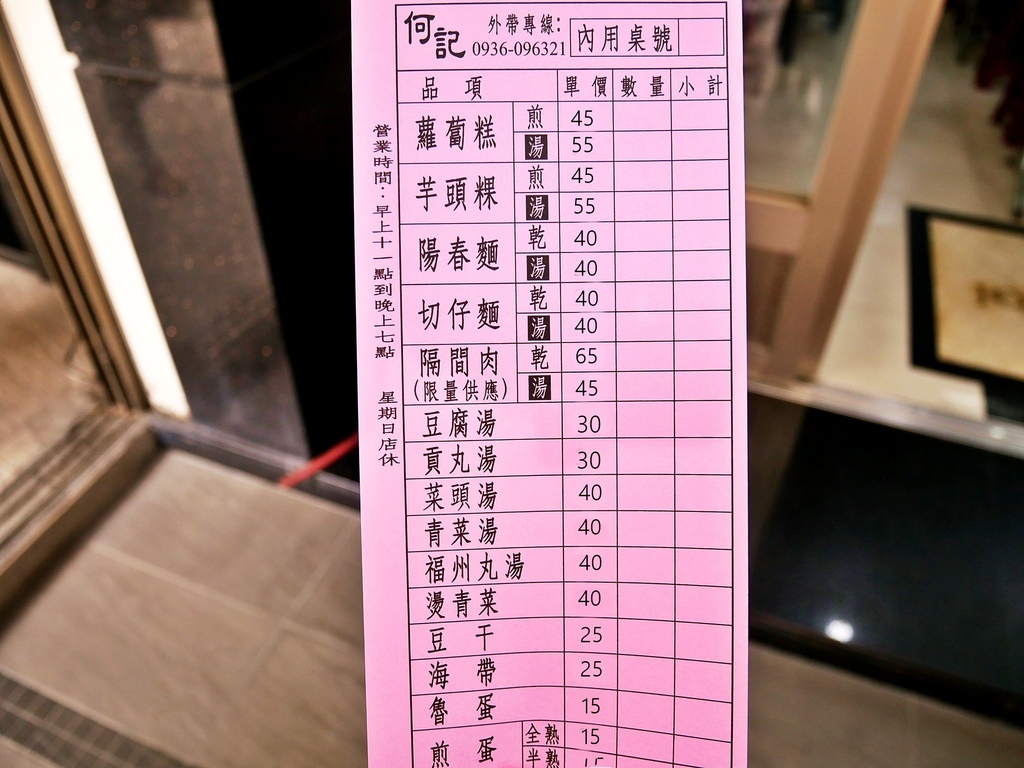 何記 外帶專線: 0936-096321 內用桌號
品項 單價 數量 小計
蘿蔔糕 煎 45
湯 55
芋頭粿 煎 45
湯 55
陽春麵 乾 40
湯 40
切仔麵 乾 40
湯 40
隔間肉 乾 65
(限量供應) 湯 45
豆腐湯 30
貢丸湯 30
菜頭湯 40
青菜湯 40
福州丸湯 40
燙青菜 40
豆干 25
海帶 25
魯蛋 15
煎蛋 全熟 15
半熟
營業時間：早上十一點到晚上七點 星期日店休